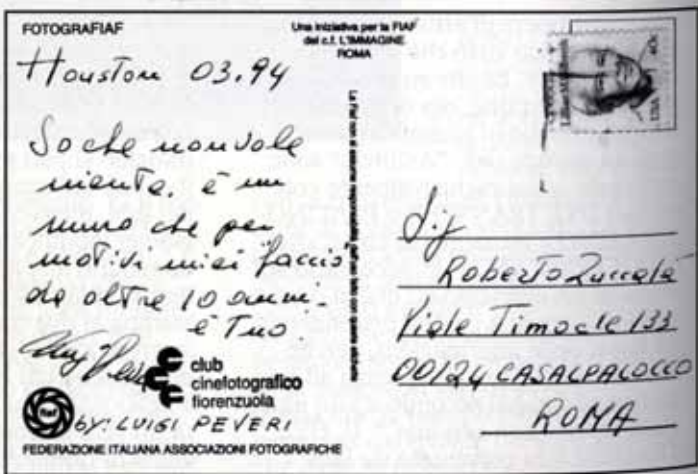 FOTOGRAFIAF
Una iniziativa per la FIAF
del c.f. L'IMMAGINE
ROMA
Houston 03.94
So che non vale
niente, è un
numero che per
motivi miei faccio
da oltre 10 anni.
è Tuo
club
cinefotografico
fiorenzuola
fiaf
by: LUIGI PEVERI
FEDERAZIONE ITALIANA ASSOCIAZIONI FOTOGRAFICHE
La Fiaf non si assume
USA
40c
Lillian M. Gilbreth
Sig
Roberto Zuccalà
Viale Timocle 133
00124 CASALPALOCCO
ROMA